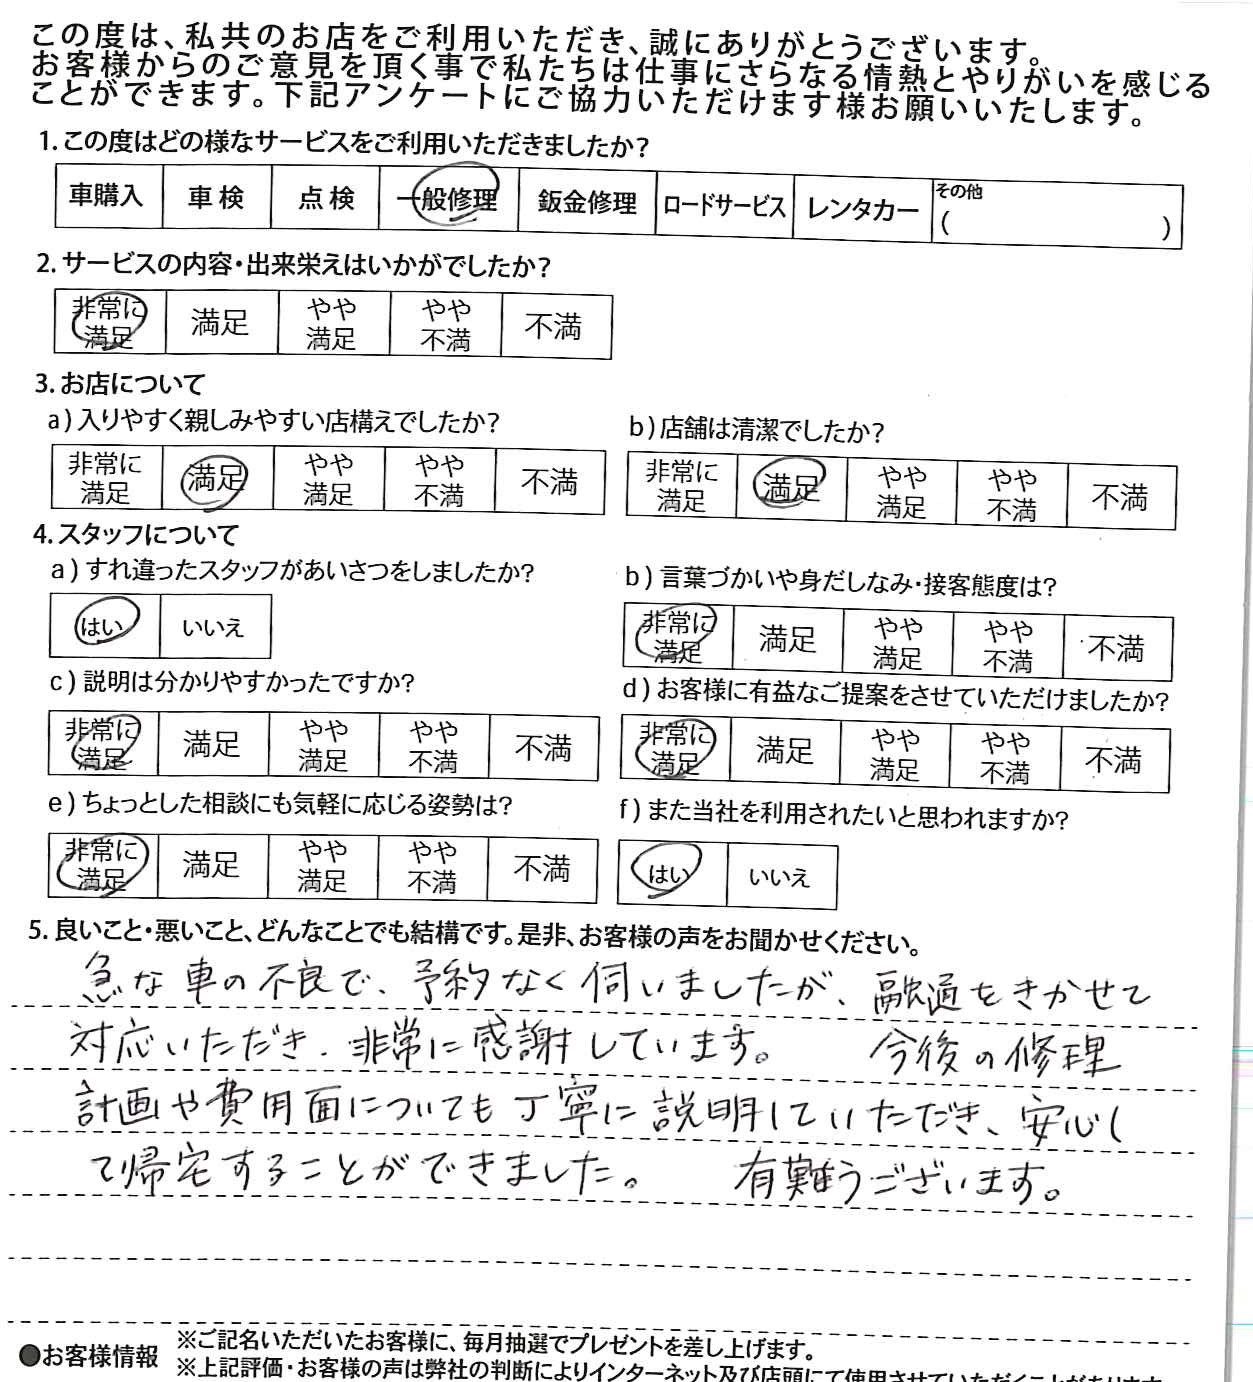 この度は、私共のお店をご利用いただき、誠にありがとうございます。
お客様からのご意見を頂く事で私たちは仕事にさらなる情熱とやりがいを感じる
ことができます。下記アンケートにご協力いただけます様お願いいたします。
1.この度はどの様なサービスをご利用いただきましたか?
車購入 車検 点検 一般修理 鈑金修理 ロードサービス レンタカー その他
( )
2.サービスの内容・出来栄えはいかがでしたか?
非常に満足 満足 やや満足 やや不満 不満
3.お店について
a)入りやすく親しみやすい店構えでしたか?
非常に満足 満足 やや満足 やや不満 不満
b)店舗は清潔でしたか?
非常に満足 満足 やや満足 やや不満 不満
4.スタッフについて
a)すれ違ったスタッフがあいさつをしましたか?
はい いいえ
b)言葉づかいや身だしなみ・接客態度は?
非常に満足 満足 やや満足 やや不満 不満
c)説明は分かりやすかったですか?
非常に満足 満足 やや満足 やや不満 不満
d)お客様に有益なご提案をさせていただけましたか?
非常に満足 満足 やや満足 やや不満 不満
e)ちょっとした相談にも気軽に応じる姿勢は?
非常に満足 満足 やや満足 やや不満 不満
f)また当社を利用されたいと思われますか?
はい いいえ
5.良いこと・悪いこと、どんなことでも結構です。是非、お客様の声をお聞かせください。
急な車の不良で、予約なく伺いましたが、融通をきかせて
対応いただき、非常に感謝しています。 今後の修理
計画や費用面についても丁寧に説明していただき、安心し
て帰宅することができました。 有難うございます。
●お客様情報 ※ご記名いただいたお客様に、毎月抽選でプレゼントを差し上げます。
※上記評価・お客様の声は弊社の判断によりインターネット及び店頭にて使用させていただくことがあります